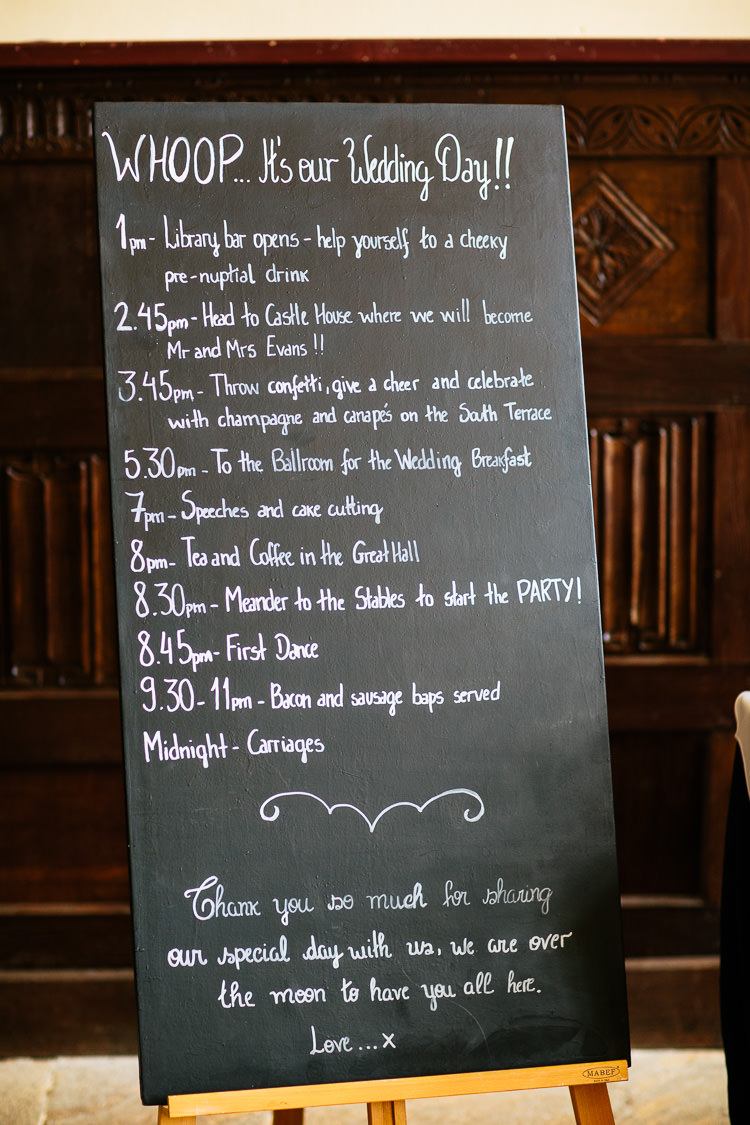 WHOOP... It's our Wedding Day!!
1pm - Library bar opens - help yourself to a cheeky
pre-nuptial drink
2.45pm - Head to Castle House where we will become
Mr and Mrs Evans !!
3.45pm - Throw confetti, give a cheer and celebrate
with champagne and canapés on the South Terrace
5.30pm - To the Ballroom for the Wedding Breakfast
7pm - Speeches and cake cutting
8pm - Tea and Coffee in the Great Hall
8.30pm - Meander to the Stables to start the PARTY!
8.45pm - First Dance
9.30 - 11pm - Bacon and sausage baps served
Midnight - Carriages
Thank you so much for sharing
our special day with us, we are over
the moon to have you all here.
Love ... x
MABEF